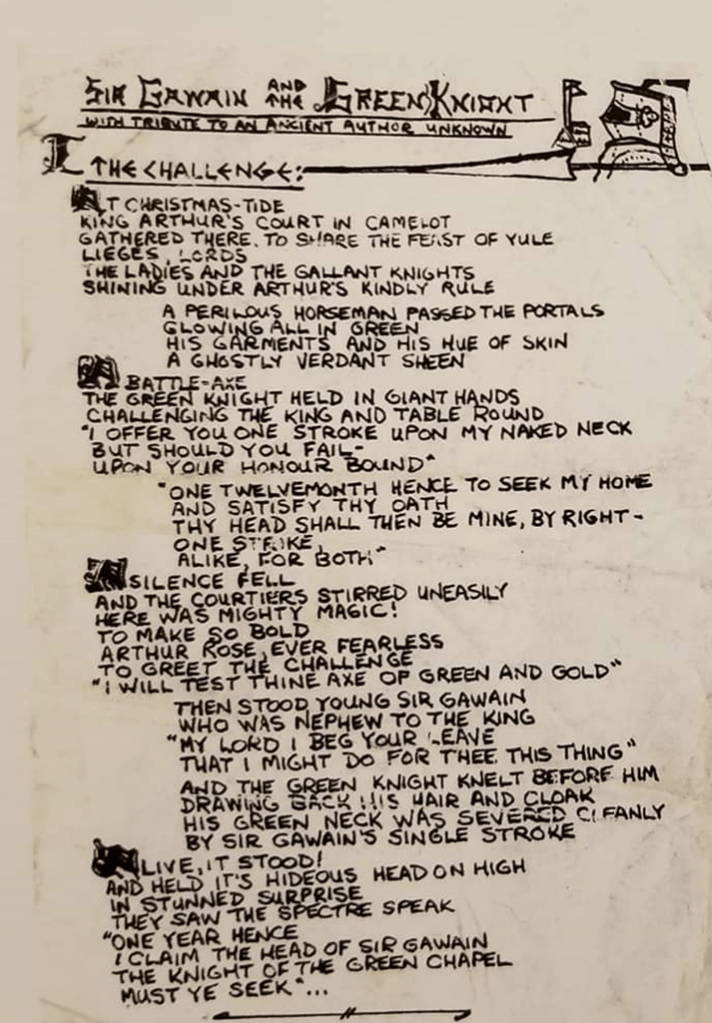 SIR GAWAIN AND THE GREEN KNIGHT
WITH TRIBUTE TO AN ANCIENT AUTHOR UNKNOWN
I THE CHALLENGE:
AT CHRISTMAS-TIDE
KING ARTHUR'S COURT IN CAMELOT
GATHERED THERE. TO SHARE THE FEAST OF YULE
LIEGES, LORDS
THE LADIES AND THE GALLANT KNIGHTS
SHINING UNDER ARTHUR'S KINDLY RULE
A PERILOUS HORSEMAN PASSED THE PORTALS
GLOWING ALL IN GREEN
HIS GARMENTS AND HIS HUE OF SKIN
A GHOSTLY VERDANT SHEEN
A BATTLE-AXE
THE GREEN KNIGHT HELD IN GIANT HANDS
CHALLENGING THE KING AND TABLE ROUND
"I OFFER YOU ONE STROKE UPON MY NAKED NECK
BUT SHOULD YOU FAIL-
UPON YOUR HONOUR BOUND"
"ONE TWELVEMONTH HENCE TO SEEK MY HOME
AND SATISFY THY OATH
THY HEAD SHALL THEN BE MINE, BY RIGHT-
ONE STRIKE,
ALIKE, FOR BOTH"
SILENCE FELL
AND THE COURTIERS STIRRED UNEASILY
HERE WAS MIGHTY MAGIC!
TO MAKE SO BOLD
ARTHUR ROSE, EVER FEARLESS
TO GREET THE CHALLENGE
"I WILL TEST THINE AXE OF GREEN AND GOLD"
THEN STOOD YOUNG SIR GAWAIN
WHO WAS NEPHEW TO THE KING
"MY LORD I BEG YOUR LEAVE
THAT I MIGHT DO FOR THEE THIS THING"
AND THE GREEN KNIGHT KNELT BEFORE HIM
DRAWING BACK HIS HAIR AND CLOAK
HIS GREEN NECK WAS SEVERED CLEANLY
BY SIR GAWAIN'S SINGLE STROKE
ALIVE, IT STOOD!
AND HELD IT'S HIDEOUS HEAD ON HIGH
IN STUNNED SURPRISE
THEY SAW THE SPECTRE SPEAK
"ONE YEAR HENCE
I CLAIM THE HEAD OF SIR GAWAIN
THE KNIGHT OF THE GREEN CHAPEL
MUST YE SEEK"...